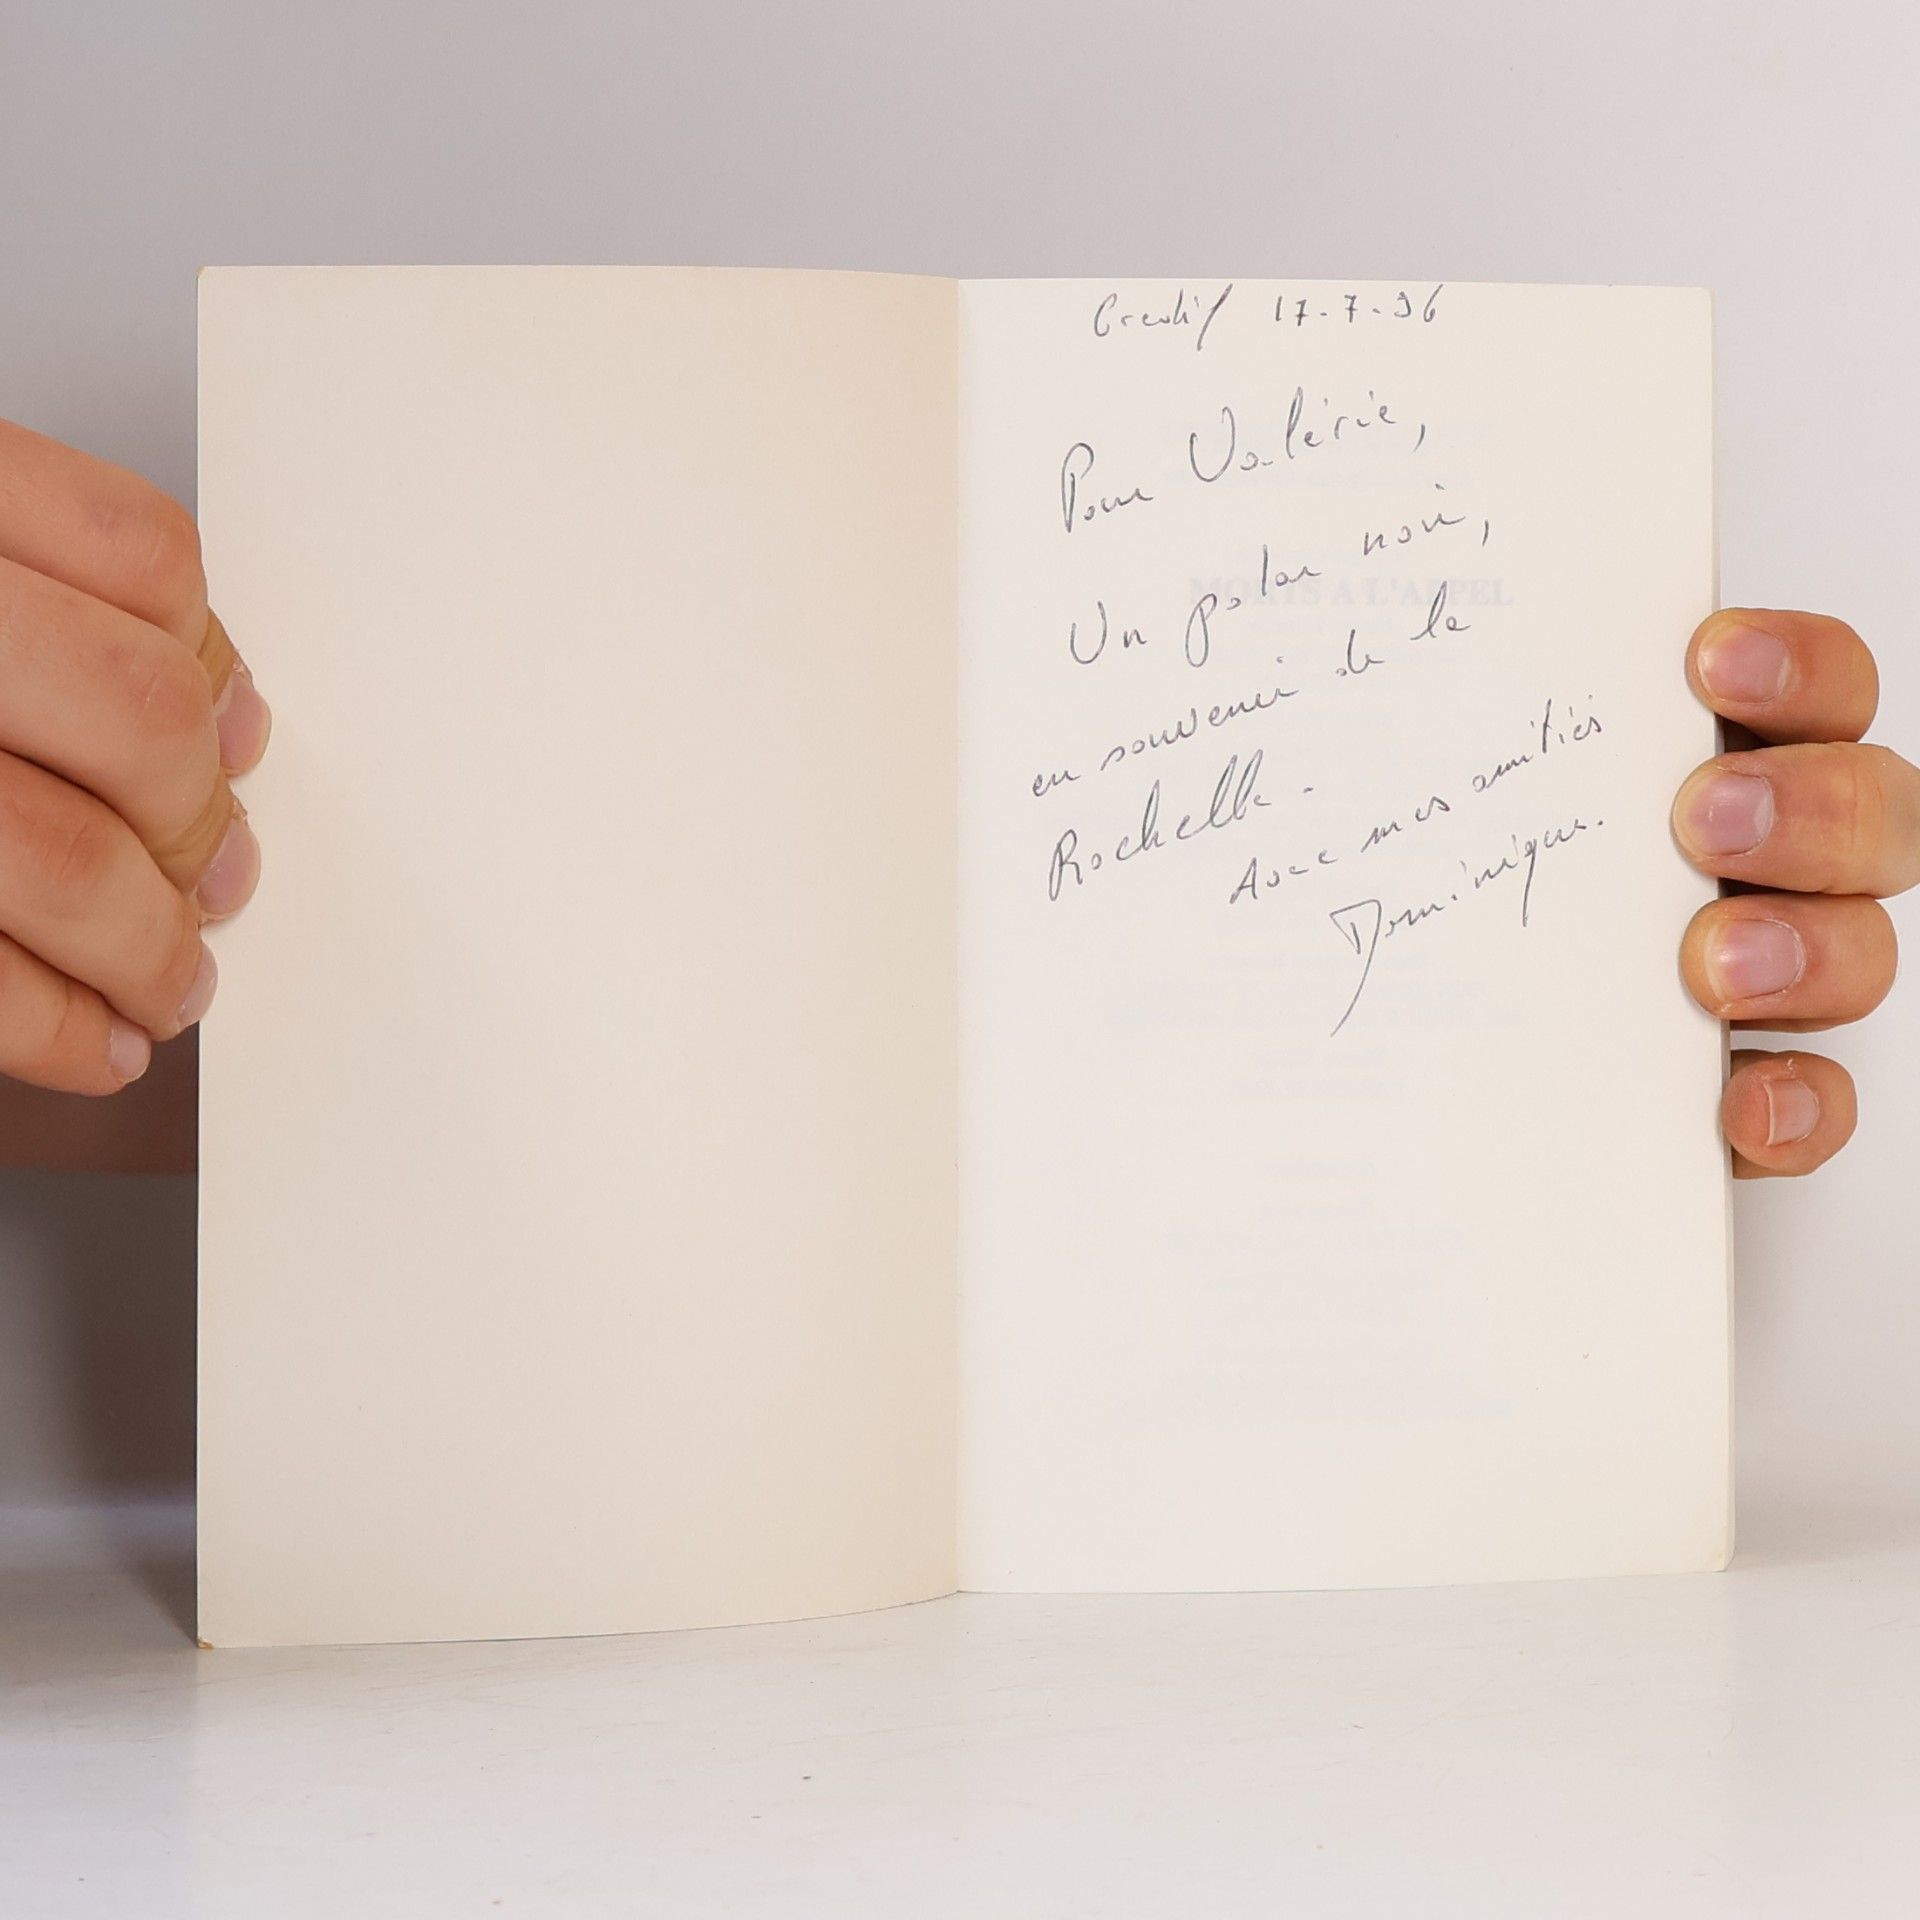 Credif 17-7-96
Pour Valérie,
Un polar noir,
en souvenir de la
Rochelle.
Avec mes amitiés
Dominique.
MORTS A L'APPEL